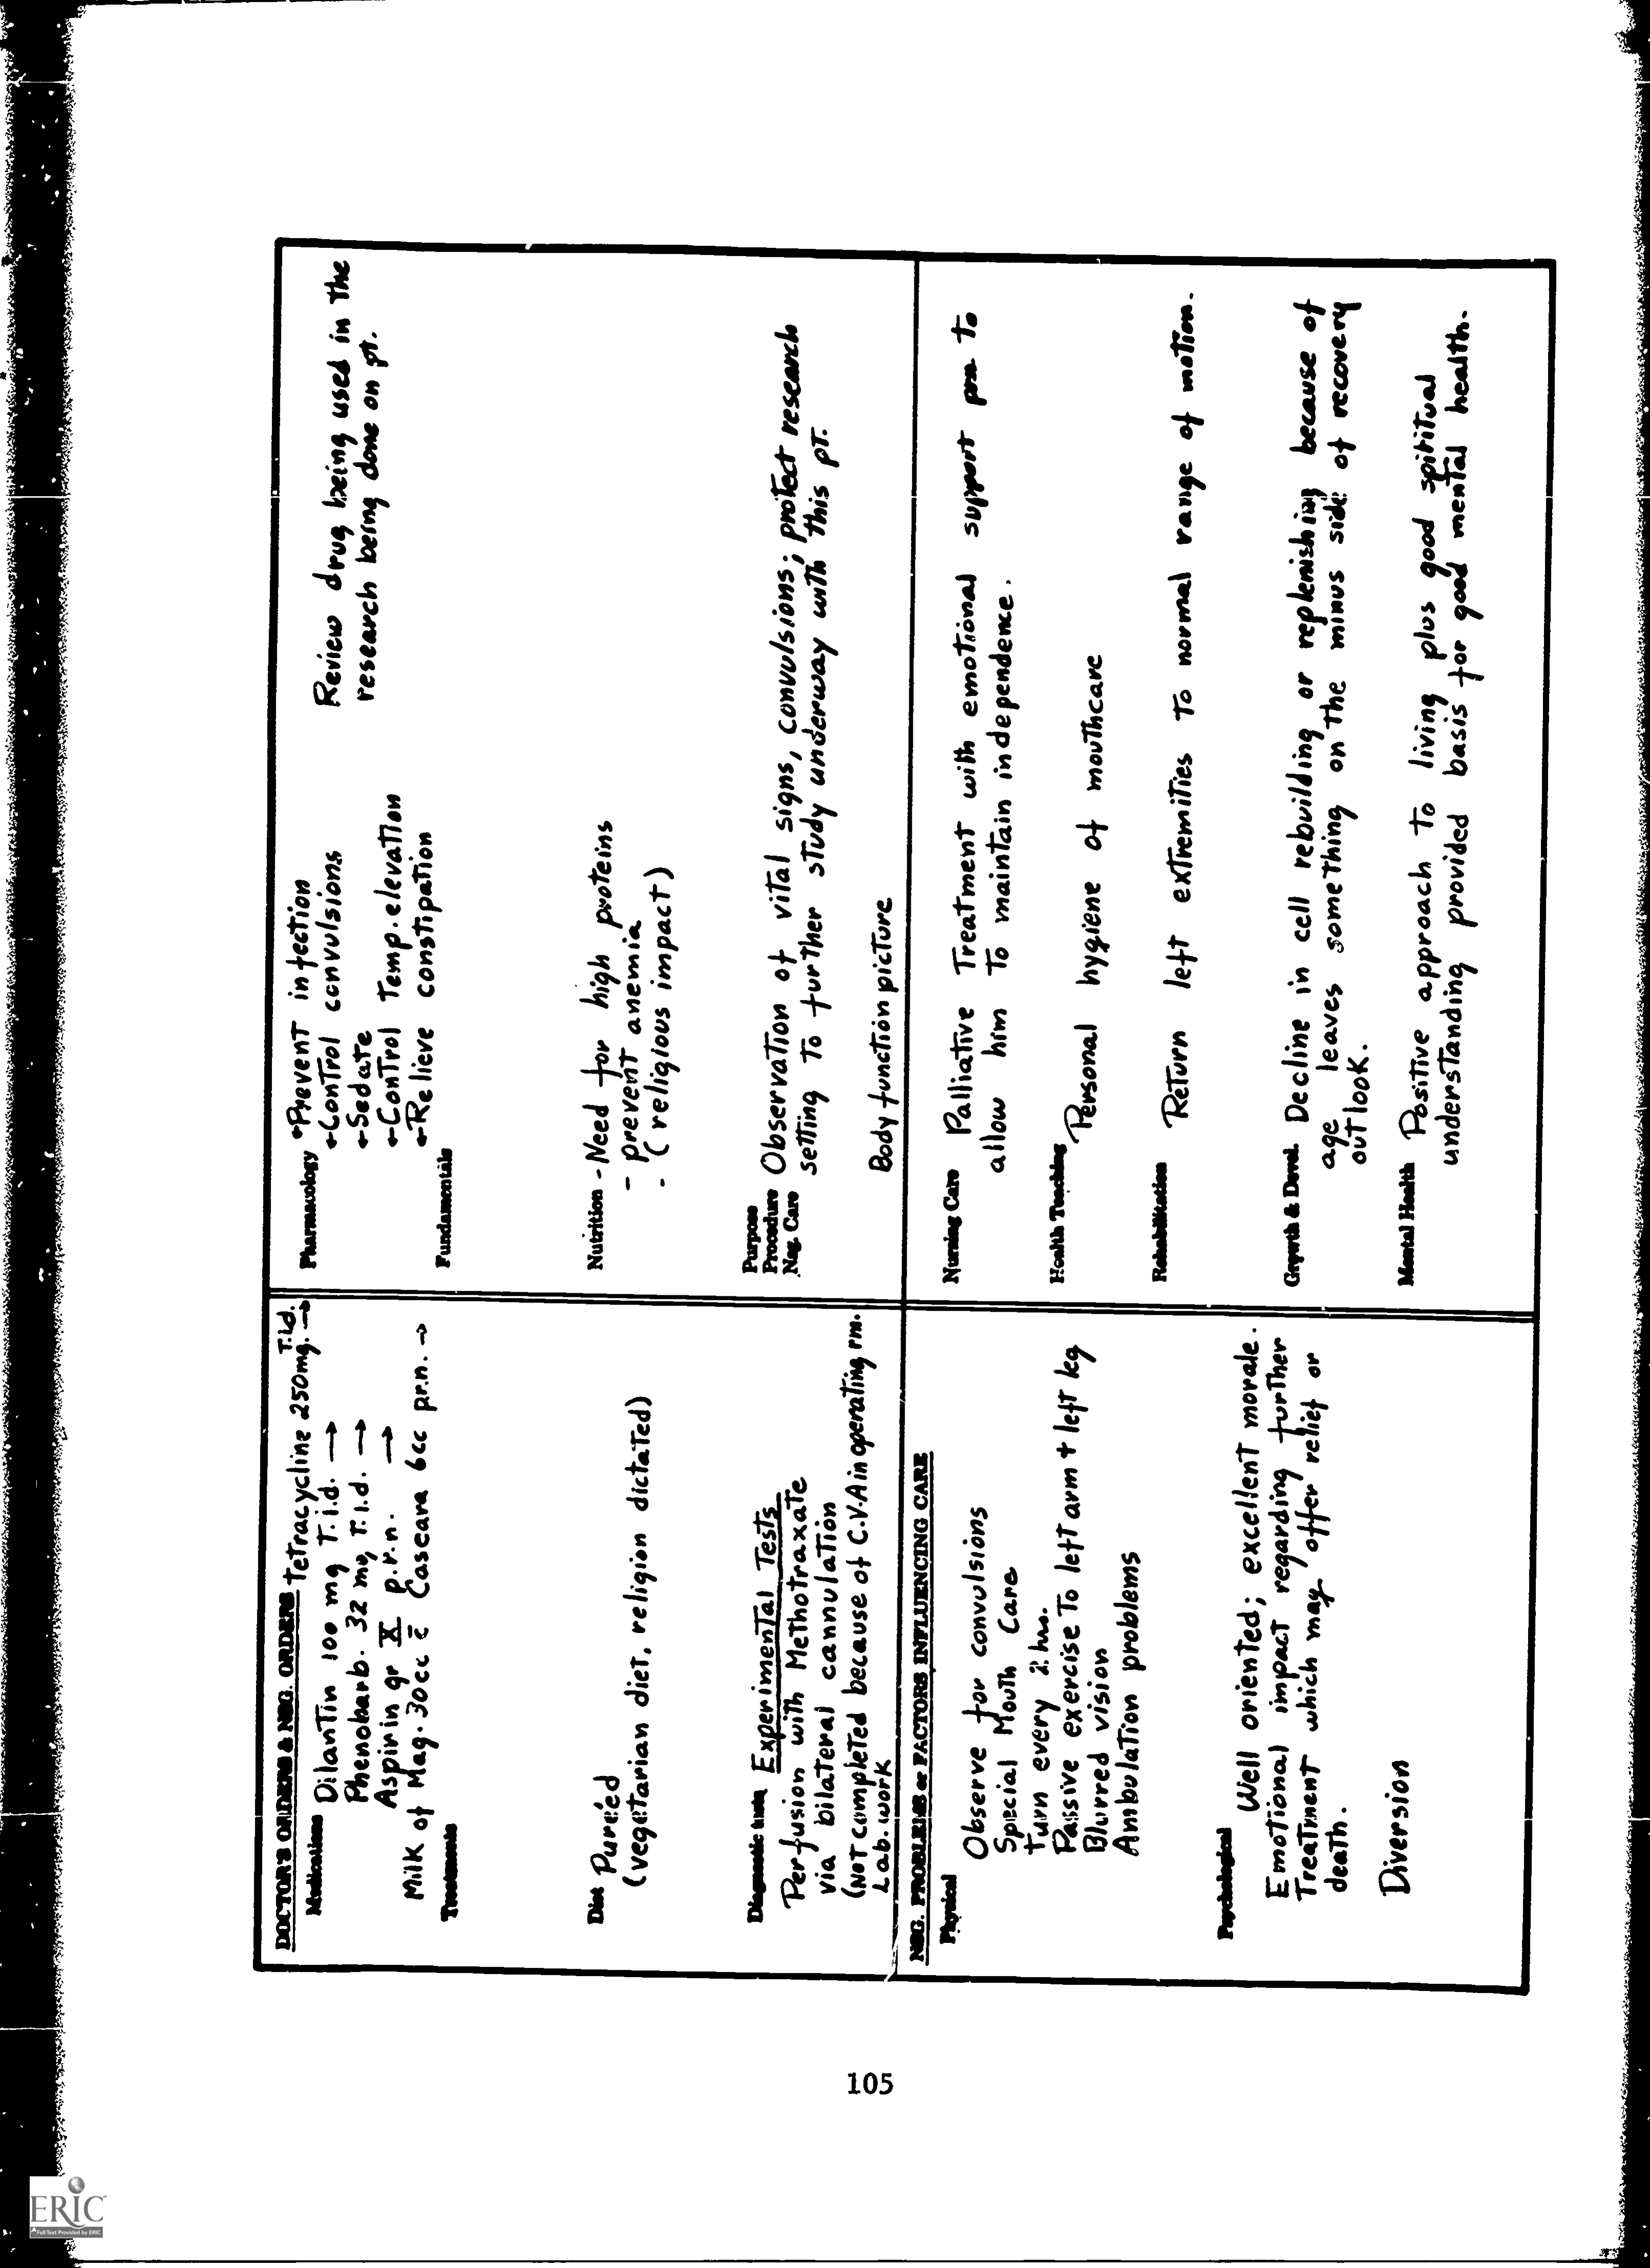 DOCTOR'S ORDERS & NSG. ORDERS Tetracycline 250mg. T.i.d. →
Medications Dilantin 100 mg T.i.d. →
Phenobarb. 32 mg, T.i.d. →
Aspirin gr X p.r.n. →
Milk of Mag. 30cc c̄ Cascara 6cc p.r.n. →
Treatments
Diet Puréed
(vegetarian diet, religion dictated)
Diagnostic tests Experimental Tests
Perfusion with Methotraxate
via bilateral cannulation
(Not completed because of C.V.A in operating rm.
Lab. work
Pharmacology ←Prevent infection
←Control convulsions
←Sedate
←Control Temp. elevation
←Relieve constipation
Review drug being used in the
research being done on pt.
Fundamentals
Nutrition - Need for high proteins
- prevent anemia
- (religious impact)
Purpose
Procedure
Nsg. Care
Observation of vital signs, convulsions; protect research
setting to further study underway with this pt.
Body function picture
NSG. PROBLEMS or FACTORS INFLUENCING CARE
Physical
Observe for convulsions
Special Mouth Care
Turn every 2 hrs.
Passive exercise To left arm + left leg
Blurred vision
Ambulation problems
Psychological
Well oriented; excellent morale.
Emotional impact regarding further
Treatment which may offer relief or
death.
Diversion
Nursing Care Palliative Treatment with emotional support to
allow him To maintain independence.
Health Teaching
Personal hygiene of mouthcare
Rehabilitation Return left extremities To normal range of motion.
Growth & Devel. Decline in cell rebuilding or replenishing because of
age leaves something on the minus side of recovery
outlook.
Mental Health Positive approach to living plus good spititual
understanding provided basis for good mental health.
105
ERIC
Full Text Provided by ERIC